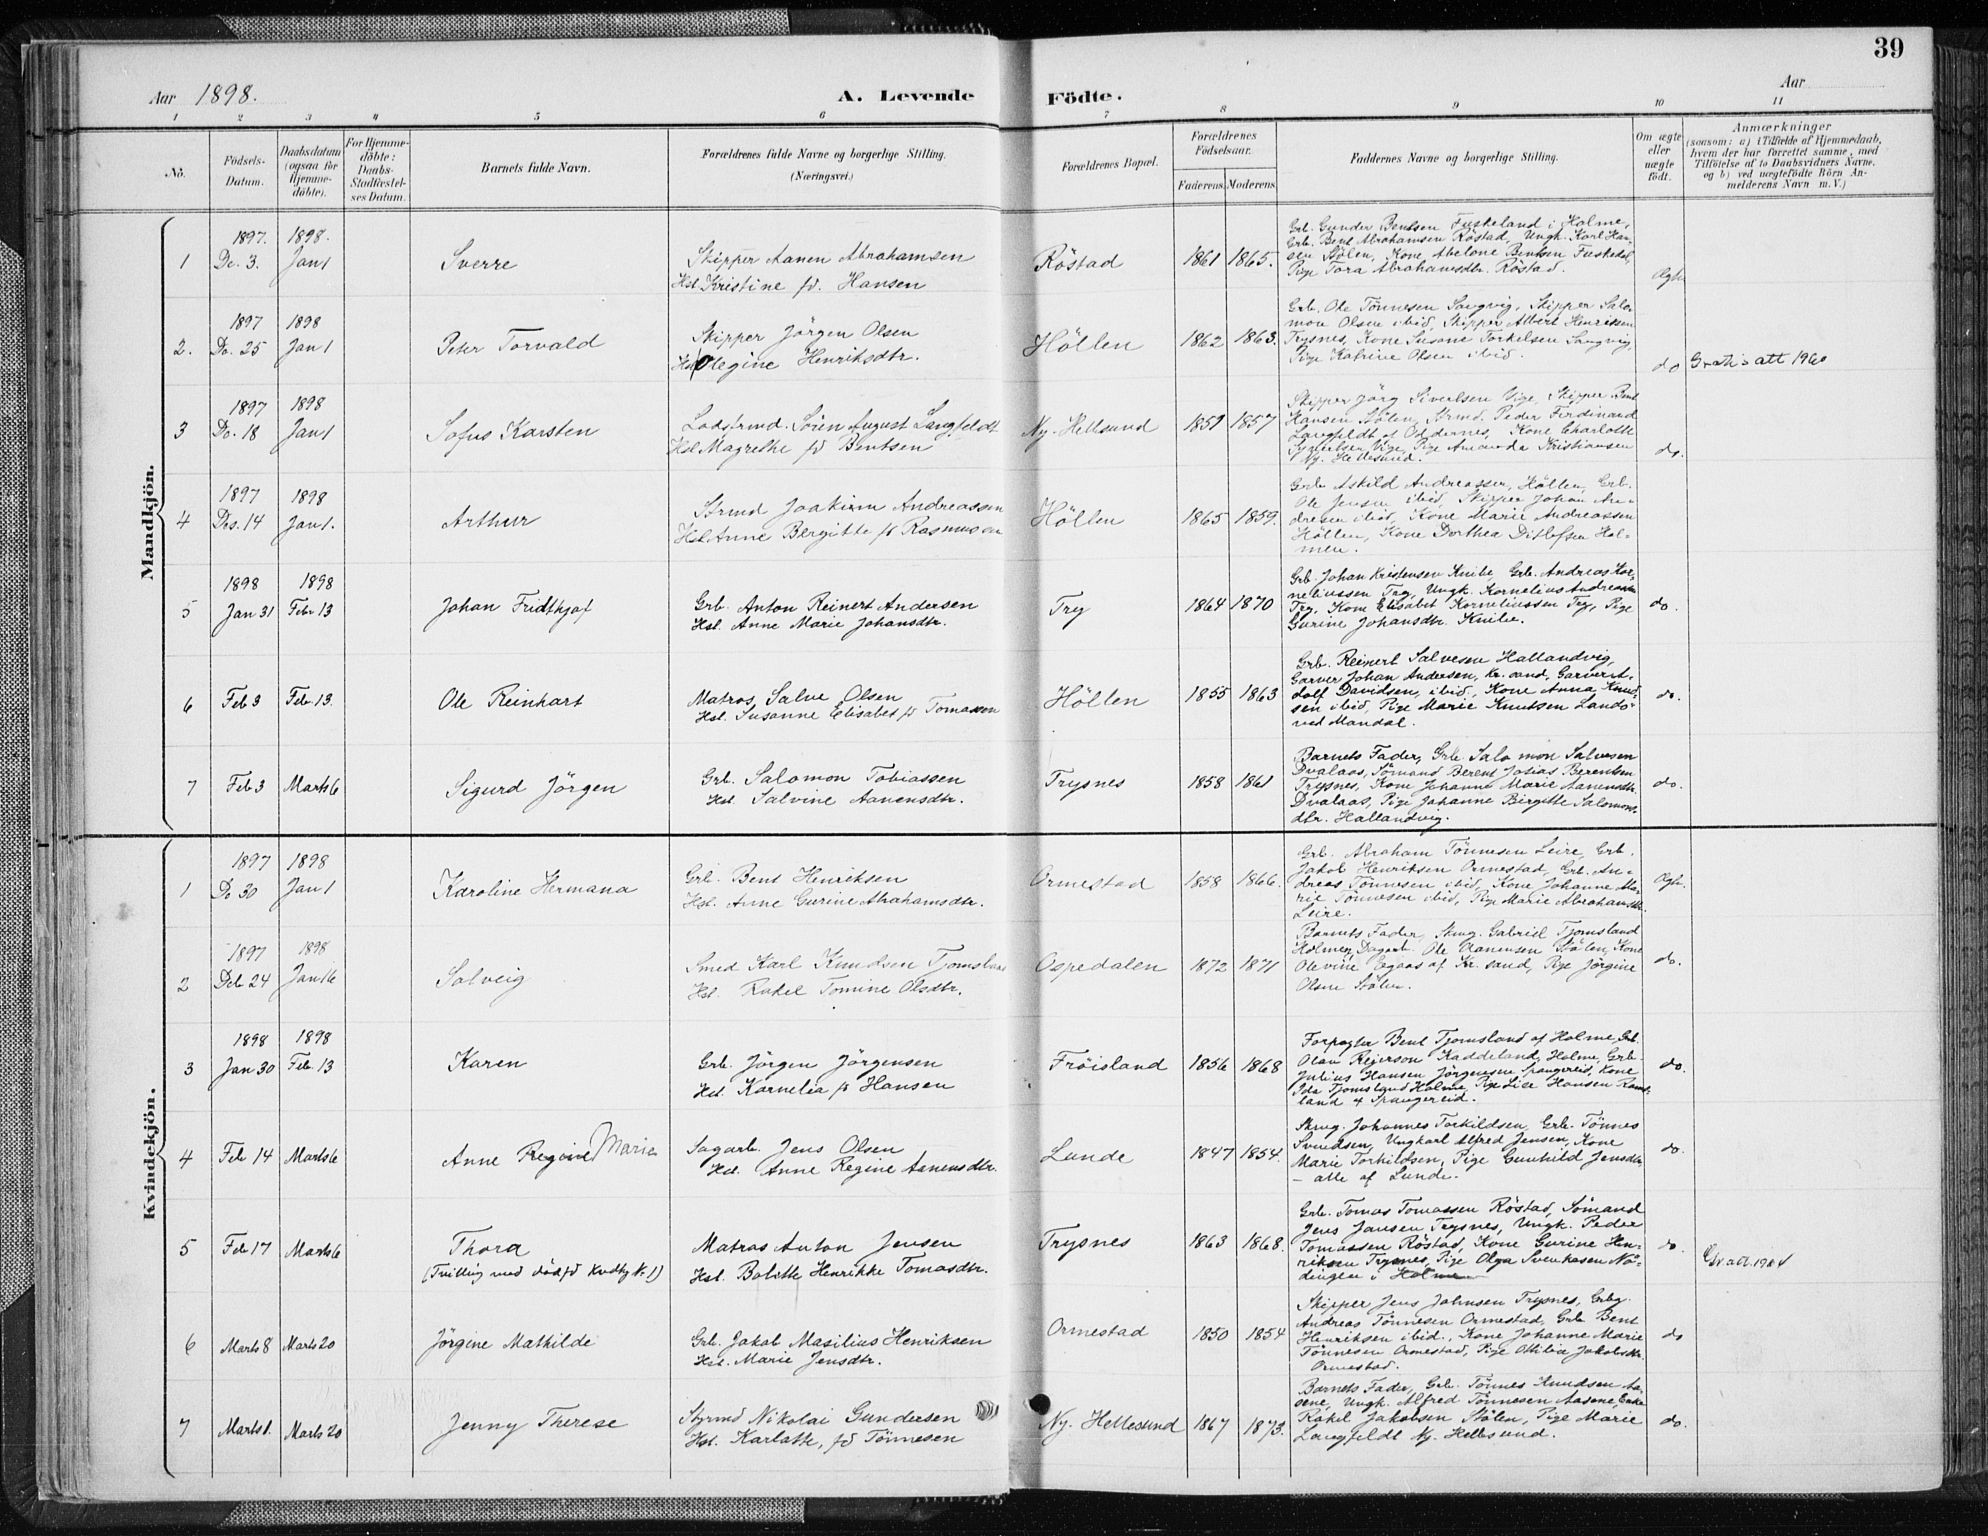 39
Aar 1898. A. Levende Födte. Aar
1 2 3 4 5 6 7 8 9 10 11
No.
Födsels-Datum.
Daabsdatum (ogsaa för Hjemmedöbte).
For Hjemmedöbte: Daabs-Stadfæstelses Datum.
Barnets fulde Navn.
Forældrenes fulde Navne og borgerlige Stilling.
(Næringsvei.)
Forældrenes Bopæl.
Forældrenes Födselsaar.
Faderens. Moderens.
Faddernes Navne og borgerlige Stilling.
Om ægte eller uægte födt.
Anmærkninger
(saasom: a) i Tilfælde af Hjemmedaab, hvem der har forrettet samme, med Tilföielse af to Daabsvidners Navne, og b) ved uægtefödte Börn Anmelderens Navn m. V.)
Mandkjön.
1 1897. De. 3. 1898. Jan 1 Sverre
Skipper Aanen Abrahamsen
Hst. Kristine fd. Hansen
Röstad 1861 1865.
Grb. Gunder Bentsen Fuskeland i Holme,
Grb. Bent Abrahamsen Röstad, Ungk. Karl Han-
sen Stölen, Kone Abelone Bentsen Fuskeland,
Pige Tora Abrahamsdtr. Röstad.
Ægte
2. 1897 De. 25 1898 Jan 1 Peter Torvald
Skipper Jörgen Olsen
Hst. Olegine Henriksdtr.
Höllen 1862 1863.
Grb. Ole Tönnesen Langvig, Skipper Salo-
mon Olsen ibid, Skipper Albert Henriksen
Trysnes, Kone Susane Torkelsen Langvig,
Pige Katrine Olsen ibid.
do Gratis att 1960
3 1897 De. 18 1898 Jan 1 Sofus Karsten
Lodsfrmd. Sören August Langfeldt
Hst. Magrethe fd Bentsen
Ny-Hellesund 1859 1857
Skipper Jörg Sivertsen Vige, Skipper Bent
Hansen Stölen, Strmd. Peder Ferdinand
Langfeldt af Oddernes, Kone Charlotte
Syvertsen Vige, Pige Amanda Kristiansen
Ny. Hellesund.
do.
4 1897 Des. 14 1898 Jan 1. Arthur
Strmd Joakim Andreassen
Hst. Anne Bergitte fd Rasmussen
Höllen 1865 1859.
Grb. Askild Andreassen, Höllen, Grb.
Ole Jensen ibid, Skipper Johan An-
dresen ibid, Kone Marie Andreassen
Höllen, Kone Dorthea Ditlefsen Hol-
men.
5 1898 Jan 31 1898 Febr 13 Johan Fridthjof
Grb. Anton Reinert Andersen
Hst. Anne Marie Johansdtr.
Try 1864 1870
Grb. Johan Kristensen Knibe, Grb. Andreas Kor-
neliussen Try, Ungk. Kornelius Andreassen
Try, Kone Elisabet Korneliussen Try, Pige
Gurine Johansdtr. Knibe.
do.
6 Feb 3 Feb. 13. Ole Reinhart
Matros Salve Olsen
Hst. Susanne Elisabet fd Tomassen
Höllen 1855 1863
Grb. Reinert Salvesen Hallandvig,
Garver Johan Andersen, Kr.sand, Garver A-
dolf Davidsen, ibid, Kone Anna Knud-
sen ibid, Pige Marie Knutsen Lando-
ved Mandal.
do.
7 Feb 3 Marts 6 Sigurd Jörgen
Grb. Salomon Tobiassen
Hst. Salvine Aanensdtr.
Trysnes 1858 1861
Barnets Fader, Grb Salomon Salvesen
Dvalaas, Sömand Berent Josias Berentsen
Trysnes, Kone Johanne Marie Aanensdtr.
Dvalaas, Pige Johanne Birgitte Salomons-
dtr. Hallandvig.
do.
Kvindekjön.
1 1897 De 30 1898 Jan 1 Karoline Hermana
Grb. Bent Henriksen
Hst. Anne Gurine Abrahamsdtr.
Ormestad 1858 1866.
Grb. Abraham Tönnesen Leire, Grb.
Jakob Henriksen Ormestad, Grb. An-
dreas Tönnesen ibid, Kone Johanne Ma-
rie Tönnesen ibid, Pige Marie Abrahamsdtr.
Leire.
Ægte.
2 1897 Deb 24 1898 Jan 16 Solveig
Smed Karl Knudsen Tjomsland
Hst. Rakel Tomine Olsdtr.
Ospedalen 1872 1871
Barnets Fader, Skug. Gabriel Tjomsland
Holmen, Dagarb. Ole Aanensen Stölen, Kone
Olevine Egaas af Kr.sand, Pige Jörgine
Olsen Stölen.
do.
3 1898 Jan 30 1898 Feb. 13 Karen
Grb. Jörgen Jörgensen
Hst. Kornelia fd Hansen
Fröisland 1856 1868
Forpagter Bent Tjomsland af Holme, Grb.
Olav Reierson Kaddeland, Holme, Grb.
Julius Hansen Jörgensen Spangereid, Kone
Ida Tjomsland Holme, Pige Lise Hansen Rams-
land af Spangereid.
do.
4 Feb 14 Marts 6 Anne Regine Marie
Sagarb. Jens Olsen
Hst. Anne Regine Aanensdtr.
Lunde 1847 1854.
Skug. Johannes Torkildsen, Grb. Tönnes
Svendsen, Ungkarl Alfred Jensen, Kone
Marie Torkildsen, Pige Gunhild Jensdtr.
— alle af Lunde.
do.
5 Feb 17 Marts 6 Thora
(Tvilling med dödfd Kvdkj Nr. 1)
Matros Anton Jensen
Hst. Bolette Henrikke Tomasdtr.
Trysnes 1863 1868.
Grb. Tomas Tomassen Röstad, Sömand
Jens Jansen Trysnes, Ungk. Peder
Tomassen Röstad, Kone Gurine Hen-
riksen Trysnes, Pige Olga Svenkesen Nö-
dingen i Holme
do. Gr. att. 1964
6 Marts 8 Marts 20 Jörgine Mathilde
Grb. Jakob Masilius Henriksen
Hst. Marie Jensdtr.
Ormestad 1850 1854
Skipper Jens Johnsen Trysnes, Grbr.
Andreas Tönnesen Ormestad, Grb Bent
Henriksen ibid., Kone Johanne Marie
Tönnesen Ormestad, Pige Otilia Jakobsdtr.
Ormestad.
do
7 Marts 1. Marts 20 Jenny Therese
Styrmd Nikolai Gundersen
Hst. Karlotte, fd Tönnesen
Ny. Hellesund 1867 1873.
Barnets Fader, Grb. Tönnes Knudsen Aa-
sene, Ungk. Alfred Tönnesen Aasene, Enke
Rakel Jakobsen Stölen, Pige Marie
Langfeldt Ny. Hellesund.
do.